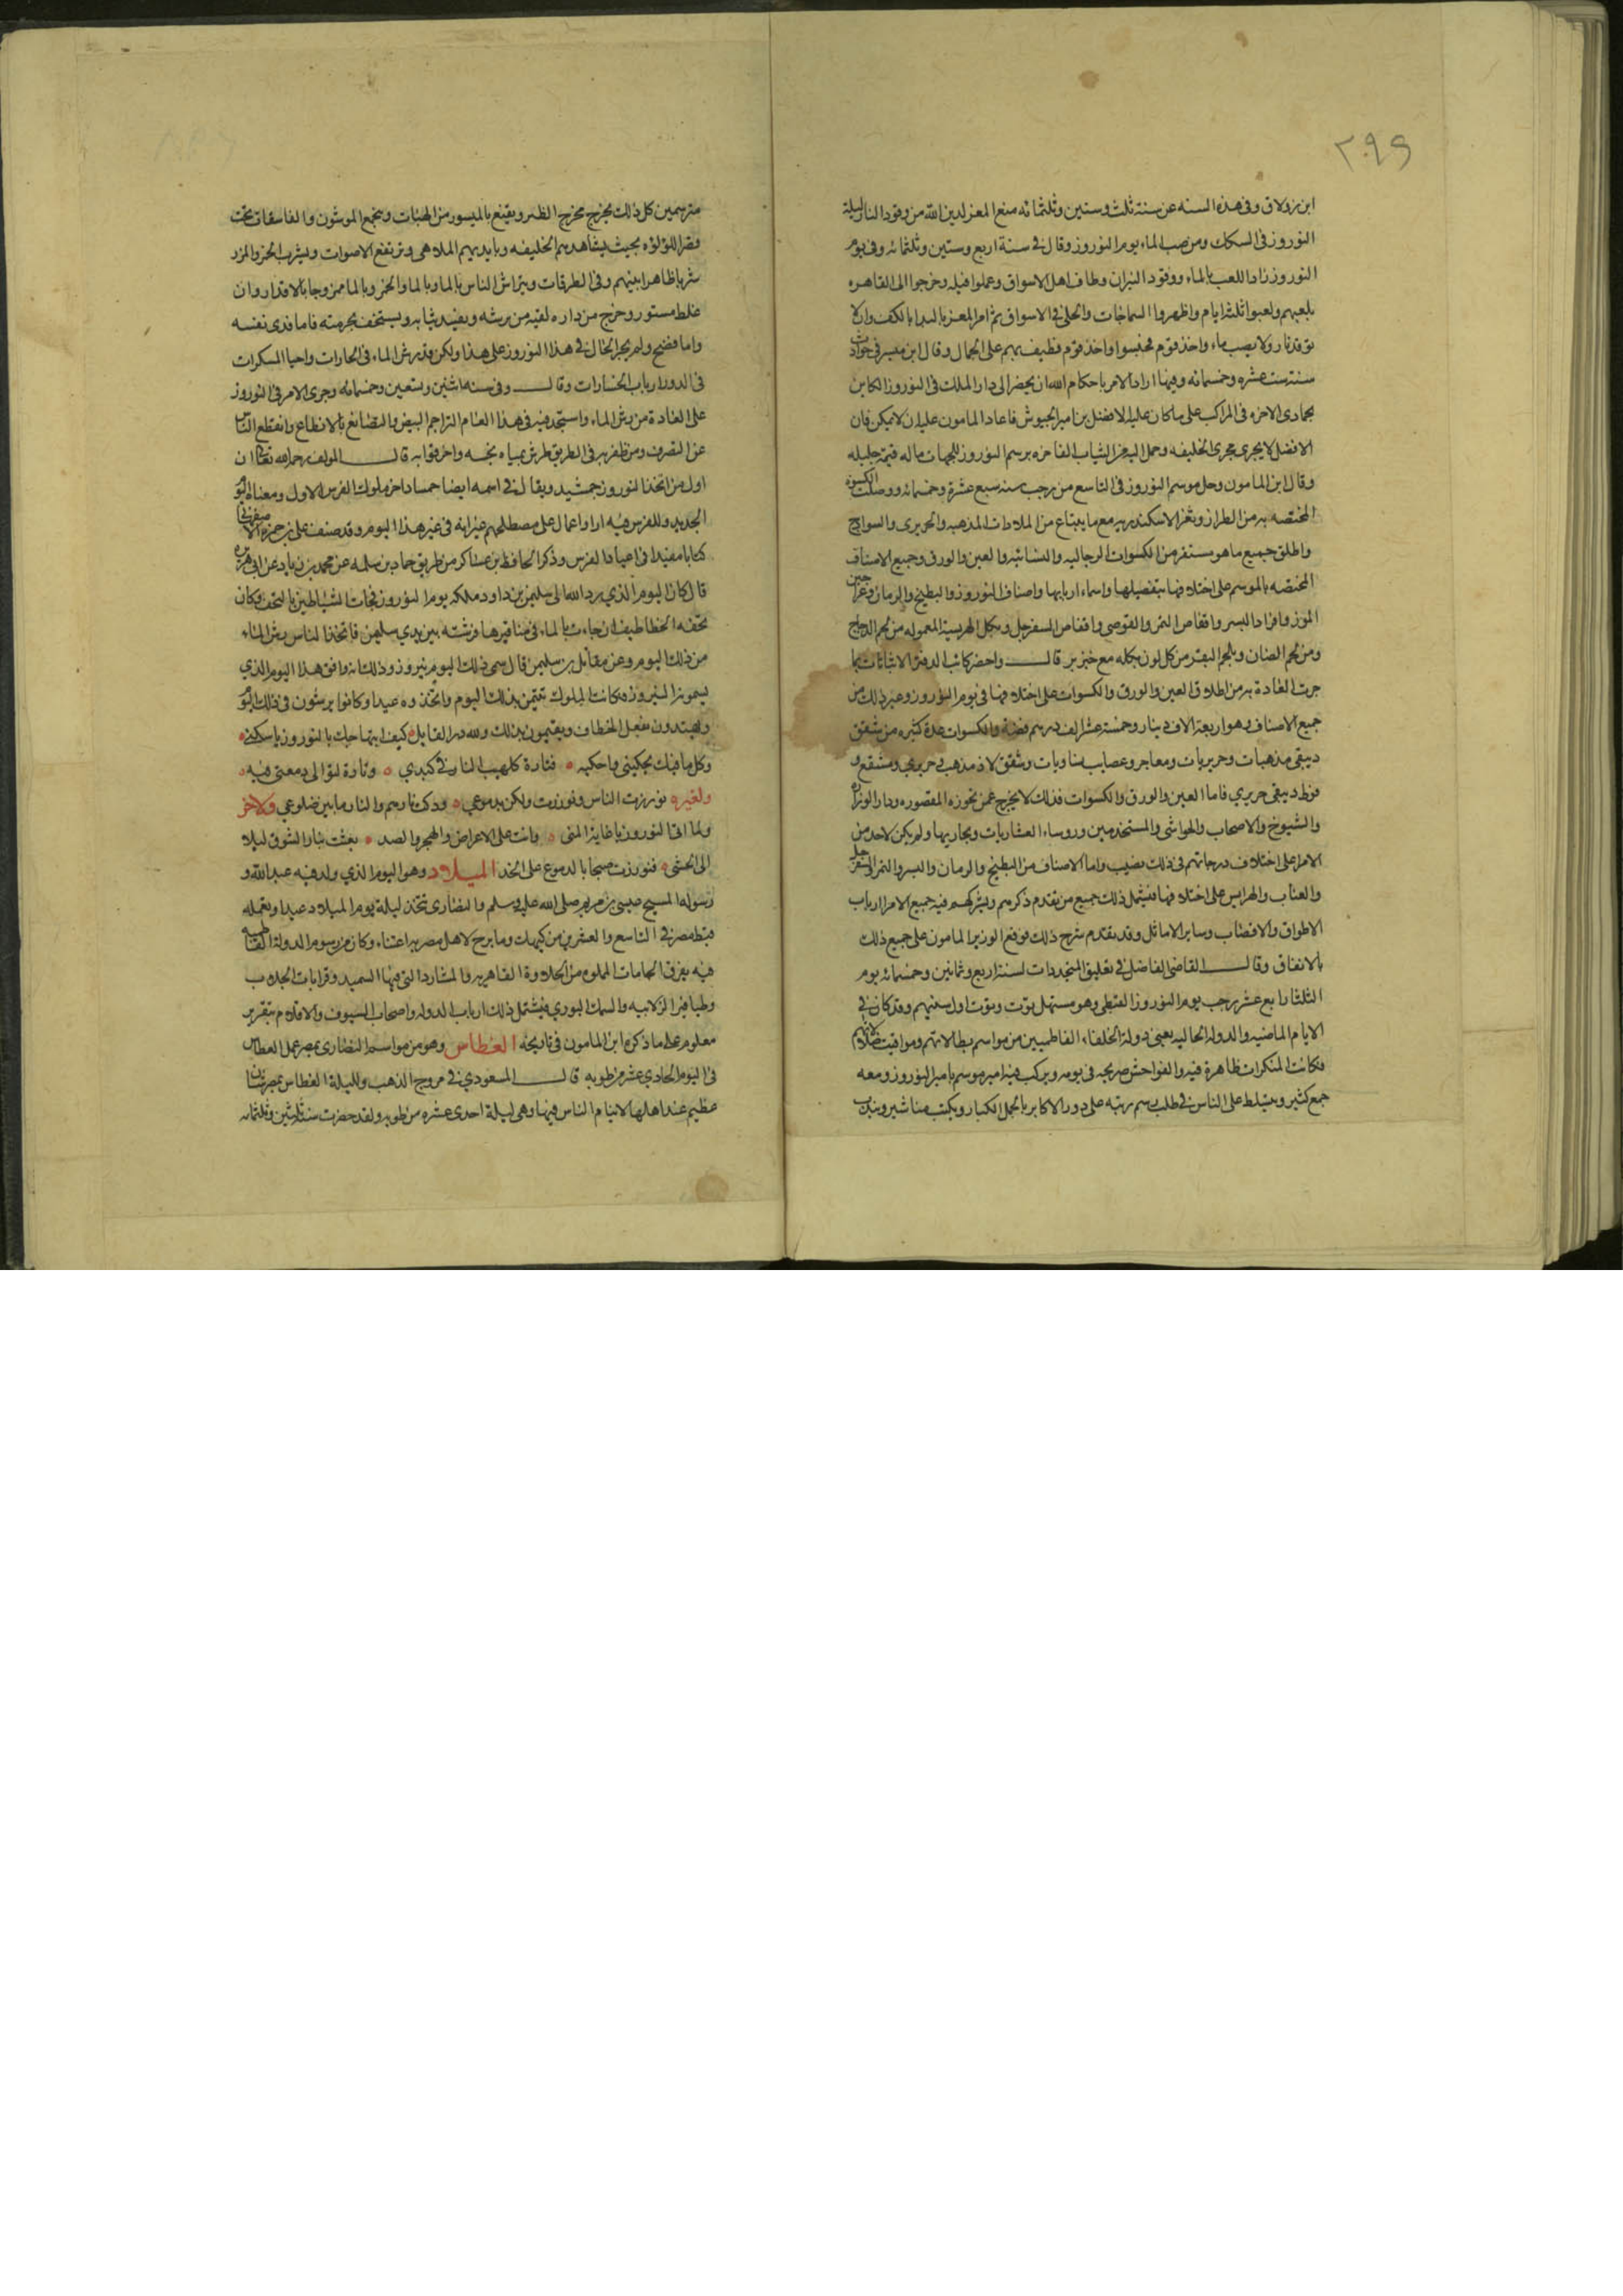 ٢٠٩٩
ابن زولاق وفى هذه السنه عن سنة ثلث وستين وثلثمائه منع المعز لدين الله من وقود النار ليلة
النوروز فى السكك ومن صب الماء يوم النوروز وقال فى سنة اربع وستين وثلثمائه وفى يوم
النوروز زاد اللعب بالماء ووقود النيران وطاف اهل الاسواق وعملوا فيله وخرجوا الى القاهره
بلعبهم ولعبوا ثلثة ايام واظهروا السماجات والحلى فى الاسواق ثم امر المعز بالندا بالكف وان لا
توقد نار ولا يصب ماء واخذ قوم فحبسوا واخذ قوم فطيف بهم على الجمال وقال ابن ميسر فى حوادث
سنة ست عشره وخمسمائه وفيها اراد الامر باحكام الله ان يحضر الى دار الملك فى النوروز الكاين
بجمادى الاخره فى المراكب على ما كان عليه الافضل بن امير الجيوش فاعاد المامون عليه انه لا يمكن فان
الافضل لا يجرى مجرى الخليفه وحمل اليه من الثياب الفاخره برسم النوروز للجهات ما له قيمة جليله
وقال ابن المامون وحل موسم النوروز فى التاسع من رجب سنه سبع عشرة وخمسمائه ووصلت الكسوه
المختصه به من الطراز وثغر الاسكندريه مع ما يبتاع من الملاءات المذهبه والحريرى والسوادج
واطلق جميع ما هو مستقر من الكسوات الرجاليه والنسائيه والعين والورق وجميع الاصناف
المختصه بالموسم على اختلافها بتفصيلها واسماء اربابها واصناف النوروز والبطيخ والرمان وعراجين
الموز وافراد البسر واقفاص التمر والقوصى واقفاص السفرجل وبكل الهريسة المعموله من لحم الدجاج
ومن لحم الضان ولحم البقر من كل لون بكله مع خبز بر قال واحضر كاتب الدفتر الاثباتات بما
جرت العادة به من اطلاق العين والورق والكسوات على اختلافها فى يوم النوروز وغير ذلك من
جميع الاصناف وهو اربعة الاف دينار وخمسة عشر الف درهم فضة والكسوات عدة كثيره من شقق
ديبقى مذهبات وحريريات ومعاجر وعصايب نساويات وشقق لاذ مذهب حريرى ومشفع و
فوط ديبقى حريرى فاما العين والورق والكسوات فذلك لا يخرج عمن تحوزه القصوره ودار الوزاره
والشيوخ والاصحاب والحواشى والمستخدمين وروساء العشاريات وبحاريها ولم يكن لاحد من
الامرا على اختلاف درجاتهم فى ذلك نصيب واما الاصناف من البطيخ والرمان والبسر والتمر والسفرجل
والعناب والهرايس على اختلافها فيشمل ذلك جميع من تقدم ذكرهم ويشركهم فيه جميع الامرا ارباب
الاطواق والاقصاب وساير الاماثل وقد تقدم شرح ذلك فوقع الوزير المامون على جميع ذلك
بالانفاق وقال القاضى الفاضل فى تعليق المتجددات لسنة اربع وثمانين وخمسمائه يوم
الثلثا رابع عشر رجب يوم النوروز القبطى وهو مستهل توت وتوت اول سنتهم وقد كان فى
الايام الماضيه والدولة الخاليه يعنى دولة الخلفاء الفاطميين من مواسم بطالاتهم ومواقيت ضلالاتهم
فكانت المنكرات ظاهرة فيه والفواحش صريحه فى يومه ويركب فيه امير موسم بامير النوروز ومعه
جمع كثير ويتسلط على الناس فى طلب رسم رتبه على دور الاكابر بالجمل الكبار ويكتب مناشير ويندب
مترسمين كل ذلك يخرج مخرج الطنز ويقنع بالميسور من الهبات ويتجمع الموثون والفاسقات تحت
قصر اللؤلؤه بحيث يشاهدهم الخليفه وبايديهم الملاهى وترتفع الاصوات ويشرب الخمر والمزر
شربا ظاهرا بينهم وفى الطرقات ويتراش الناس بالماء وبالماء والخمر وبالماء ممزوجا بالاقذار وان
غلط مستور وخرج من داره لقيه من يرشه ويفسد ثيابه ويستخف بحرمته فاما فدى نفسه
واما فضح ولم يجر الحال فى هذا النوروز على هذا ولكن قد رش الماء فى الحارات واحيا المسكرات
فى الدور ارباب الخسارات وقال وفى سنه اثنين وتسعين وخمسمائه وجرى الامر فى النوروز
على العادة من رش الماء واستجد فيه فى هذا العام التراجم بالبيض والتصافع بالانطاع وانقطع الناس
عن التصرف ومن ظفر به فى الطريق رش بمياه نجسه واخرق به قال المولف رحمه الله تعالى ان
اول من اتخذ النوروز جمشيد ويقال فى اسمه ايضا جمساد احد ملوك الفرس الاول ومعناه اليوم
الجديد وللفرس فيه ارا واعمال على مصطلحهم غير انه فى غير هذا اليوم وقد صنف على بن حمزه الاصفهانى
كتابا مفيدا فى اعياد الفرس وذكر الحافظ بن عساكر من طريق حماد بن سلمه عن محمد بن زياد عن ابى هريره
قال كان اليوم الذى رد الله الى سليمن بن داود ملكه يوم النوروز فجات الشياطين بالتحف وكان
تحفه الخطاطيف ان جاءت بالماء فى مناقيرها فرشته بين يدى سليمن فاتخذ الناس رش الماء
من ذلك اليوم وعن مقاتل بن سليمن قال سمى ذلك اليوم نيروز وذلك انه وافق هذا اليوم الذى
يسمونه النيروز فكانت الملوك تتيمن بذلك اليوم واتخذوه عيدا وكانوا يرشون فى ذلك اليوم
ويهتدون بفعل الخطاف ويقيمون بذلك ولله در القايل كيف ابتهاجك بالنوروز يا سكنى
وكل ما فيك يحكينى واحكيه فتارة كلهيب النار فى كبدى وتارة لتوالى دمعتى فيه
ولغيره نورزت الناس ونورزت ولكن بدموعى وذكت نارهم والنار ما بين ضلوعى ولاخر
ولما اتى النوروز يا غاية المنى وانت على الاعراض والهجر والصد بعثت بنار الشوق ليلا
الى الحشى فنورزت صبحا بالدموع على الخد الميلاد وهو اليوم الذى ولد فيه عبد الله و
رسوله المسيح عيسى بن مريم صلى الله عليه وسلم والنصارى تتخذ ليلة يوم الميلاد عيدا وتعمله
قبط مصر فى التاسع والعشرين من كيهك وما برح لاهل مصر به اعتناء وكان من رسوم الدولة الفاطميه
فيه تفرقة الجامات المملوه من الحلاوة القاهريه والمتارد التى فيها السميد وقرابات الجلاب
وطيافير الزلابيه والسمك البورى فيشمل ذلك ارباب الدوله واصحاب السيوف والاقلام بتقرير
معلوم على ما ذكره ابن المامون فى تاريخه الغطاس وهو من مواسم النصارى بمصر عمل الغطاس
فى اليوم الحادى عشر من طوبه قال المسعودى فى مروج الذهب ولليلة الغطاس بمصر شان
عظيم عند اهلها لا ينام الناس فيها وهى ليلة احدى عشره من طوبه ولقد حضرت سنة ثلثين وثلثمائه